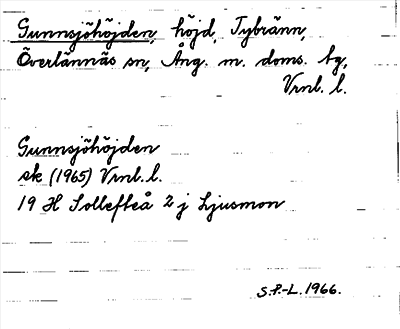 Gunnsjöhöjden, höjd, Tybränn,
Överlännäs sn, Ång. m. doms. bg,
Vrnl. l.
Gunnsjöhöjden
ek (1965) Vrnl. l.
19 H Sollefteå 2 j Ljusmon
S.P.-L. 1966.